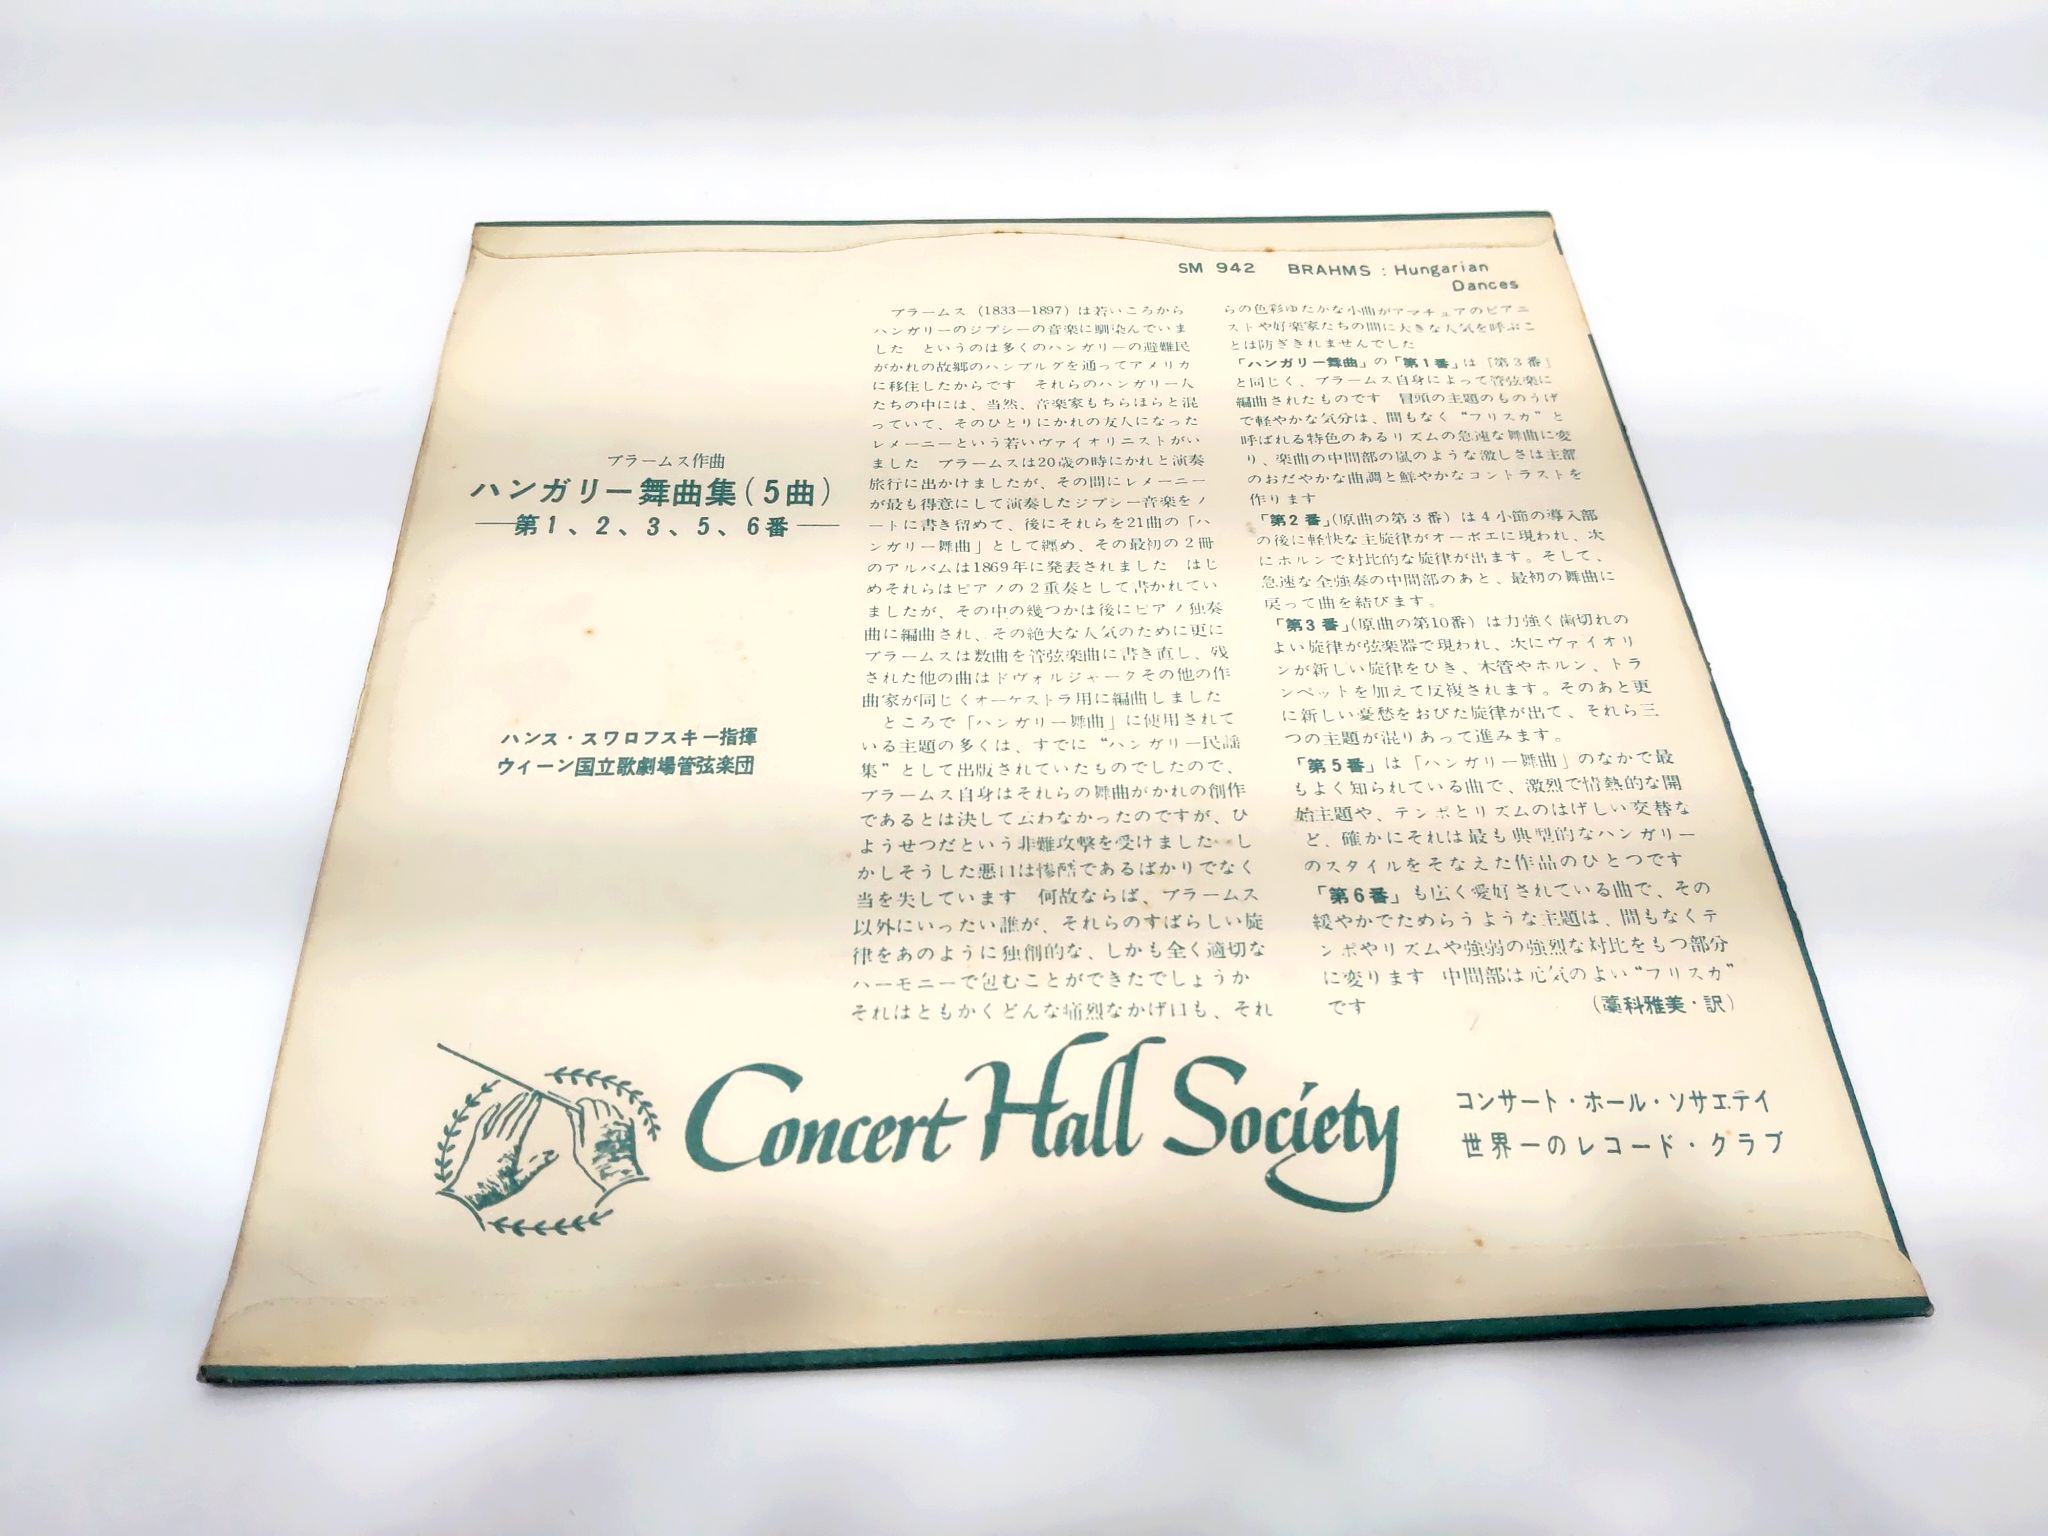 SM 942 BRAHMS : Hungarian
Dances
ブラームス作曲
ハンガリー舞曲集(5曲)
―第1、2、3、5、6番―
ハンス・スワロフスキー指揮
ウィーン国立歌劇場管弦楽団
ブラームス (1833—1897) は若いころから
ハンガリーのジプシーの音楽に馴染んでいま
した というのは多くのハンガリーの避難民
がかれの故郷のハンブルグを通ってアメリカ
に移住したからです それらのハンガリー人
たちの中には、当然、音楽家もちらほらと混
っていて、そのひとりにかれの友人になった
レメーニーという若いヴァイオリニストがい
ました ブラームスは20歳の時にかれと演奏
旅行に出かけましたが、その間にレメーニー
が最も得意にして演奏したジプシー音楽をノ
ートに書き留めて、後にそれらを21曲の「ハ
ンガリー舞曲」として纏め、その最初の2冊
のアルバムは1869年に発表されました はじ
めそれらはピアノの2重奏として書かれてい
ましたが、その中の幾つかは後にピアノ独奏
曲に編曲され、その絶大な人気のために更に
ブラームスは数曲を管弦楽曲に書き直し、残
された他の曲はドヴォルジャークその他の作
曲家が同じくオーケストラ用に編曲しました
ところで「ハンガリー舞曲」に使用されて
いる主題の多くは、すでに“ハンガリー民謡
集”として出版されていたものでしたので、
ブラームス自身はそれらの舞曲がかれの創作
であるとは決して云わなかったのですが、ひ
ようせつだという非難攻撃を受けました し
かしそうした悪口は惨酷であるばかりでなく
当を失しています 何故ならば、ブラームス
以外にいったい誰が、それらのすばらしい旋
律をあのように独創的な、しかも全く適切な
ハーモニーで包むことができたでしょうか
それはともかくどんな痛烈なかげ口も、それ
らの色彩ゆたかな小曲がアマチュアのピアニ
ストや好楽家たちの間に大きな人気を呼ぶこ
とは防ぎきれませんでした
「ハンガリー舞曲」の「第1番」は「第3番」
と同じく、ブラームス自身によって管弦楽に
編曲されたものです 冒頭の主題のものうげ
で軽やかな気分は、間もなく“フリスカ”と
呼ばれる特色のあるリズムの急速な舞曲に変
り、楽曲の中間部の嵐のような激しさは主部
のおだやかな曲調と鮮やかなコントラストを
作ります
「第2番」(原曲の第3番) は4小節の導入部
の後に軽快な主旋律がオーボエに現われ、次
にホルンで対比的な旋律が出ます。そして、
急速な全強奏の中間部のあと、最初の舞曲に
戻って曲を結びます。
「第3番」(原曲の第10番) は力強く歯切れの
よい旋律が弦楽器で現われ、次にヴァイオリ
ンが新しい旋律をひき、木管やホルン、トラ
ンペットを加えて反複されます。そのあと更
に新しい憂愁をおびた旋律が出て、それら三
つの主題が混りあって進みます。
「第5番」は「ハンガリー舞曲」のなかで最
もよく知られている曲で、激烈で情熱的な開
始主題や、テンポとリズムのはげしい交替な
ど、確かにそれは最も典型的なハンガリー
のスタイルをそなえた作品のひとつです
「第6番」も広く愛好されている曲で、その
緩やかでためらうような主題は、間もなくテ
ンポやリズムや強弱の強烈な対比をもつ部分
に変ります 中間部は元気のよい“フリスカ”
です
(藁科雅美・訳)
Concert Hall Society
コンサート・ホール・ソサエティ
世界一のレコード・クラブ